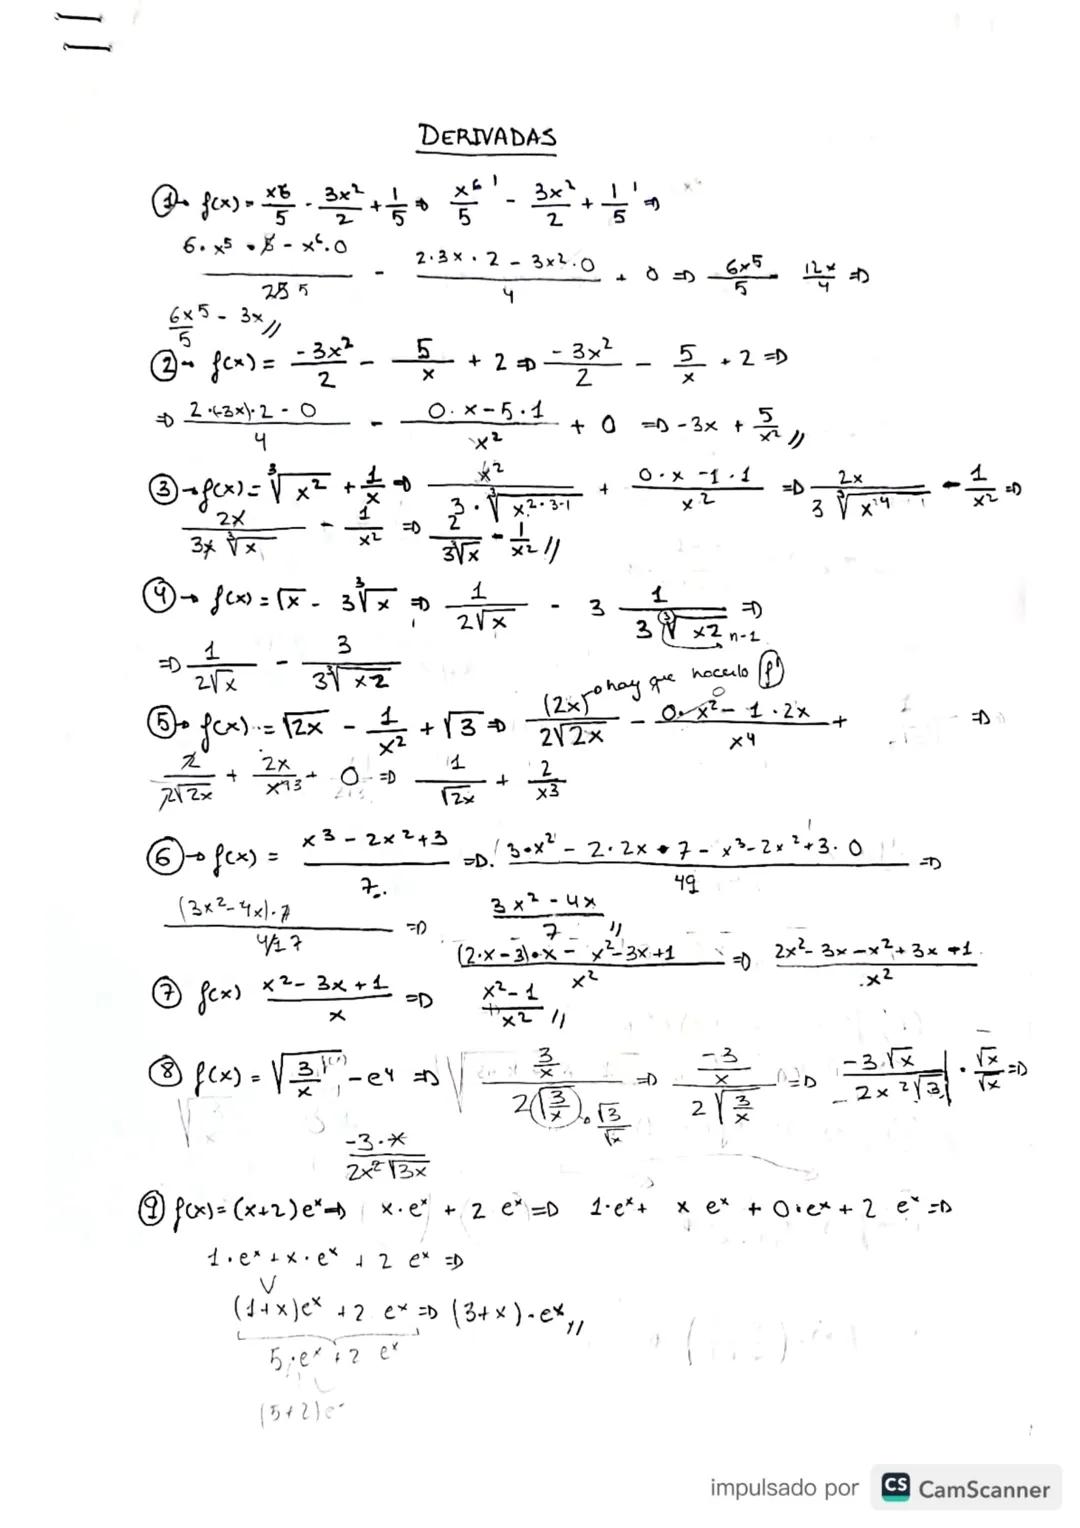 DERIVADAS
① → f(x) = x6/5 - 3x²/2 + 1/5 ⇒ x⁶/5 ' - 3x²/2 + 1/5 ' ⇒
(6·x⁵·5 - x⁶·0)/25 5 - (2·3x·2 - 3x²·0)/4 + 0 ⇒ 6x⁵/5 - 12x/4 ⇒
6x⁵/5 - 3x //
② → f(x) = -3x²/2 - 5/x + 2 ⇒ -3x²/2 - 5/x + 2 ⇒
⇒ (2·(-3x)·2 - 0)/4 - (0·x - 5·1)/x² + 0 ⇒ -3x + 5/x² //
③ → f(x) = ∛x² + 1/x ⇒ x²/(3·∛x^2·3-1) + (0·x - 1·1)/x² ⇒ 2x/(3∛x⁴) - 1/x² ⇒
2x/(3x∛x) - 1/x² ⇒ 2/(3∛x) - 1/x² //
④ → f(x) = √x - 3∛x ⇒ 1/(2√x) - 3 1/(3∛x2) n-1 ⇒
⇒ 1/(2√x) - 3/(3∛x2)
hay que hacerlo f'
⑤ → f(x) = √2x - 1/x² + √3 ⇒ (2x)/(2√2x) - (0·x² - 1·2x)/x⁴ + ⇒
2/(2√2x) + 2x/x⁴3 + 0 ⇒ 1/√2x + 2/x3
⑥ → f(x) = (x³ - 2x² + 3)/7 ⇒ (3·x² - 2·2x·7 - x³ - 2x² + 3·0)/49 ⇒
((3x² - 4x)·7)/49 7 ⇒ (3x² - 4x)/7 //
⑦ f(x) (x² - 3x + 1)/x ⇒ ((2·x - 3)·x - x² - 3x + 1)/x² ⇒ (2x² - 3x - x² + 3x + 1)/x²
(x² - 1)/x² //
⑧ f(x) = √(3/x) - e4 ⇒ (3/x)/(2√(3/x)) √3/√x ⇒ (-3/x)/(2√(3/x)) ⇒ (-3·√x)/(2x²√3) · √x/√x ⇒
(-3·x)/(2x²√3x)
⑨ f(x) = (x+2)eˣ ⇒ x·eˣ + 2 eˣ ⇒ 1·eˣ + x eˣ + 0·eˣ + 2 eˣ ⇒
1·eˣ + x·eˣ + 2 eˣ ⇒
(1+x)eˣ + 2 eˣ ⇒ (3+x)·eˣ //
5·eˣ + 2 eˣ
(5+2)e
impulsado por CS CamScanner